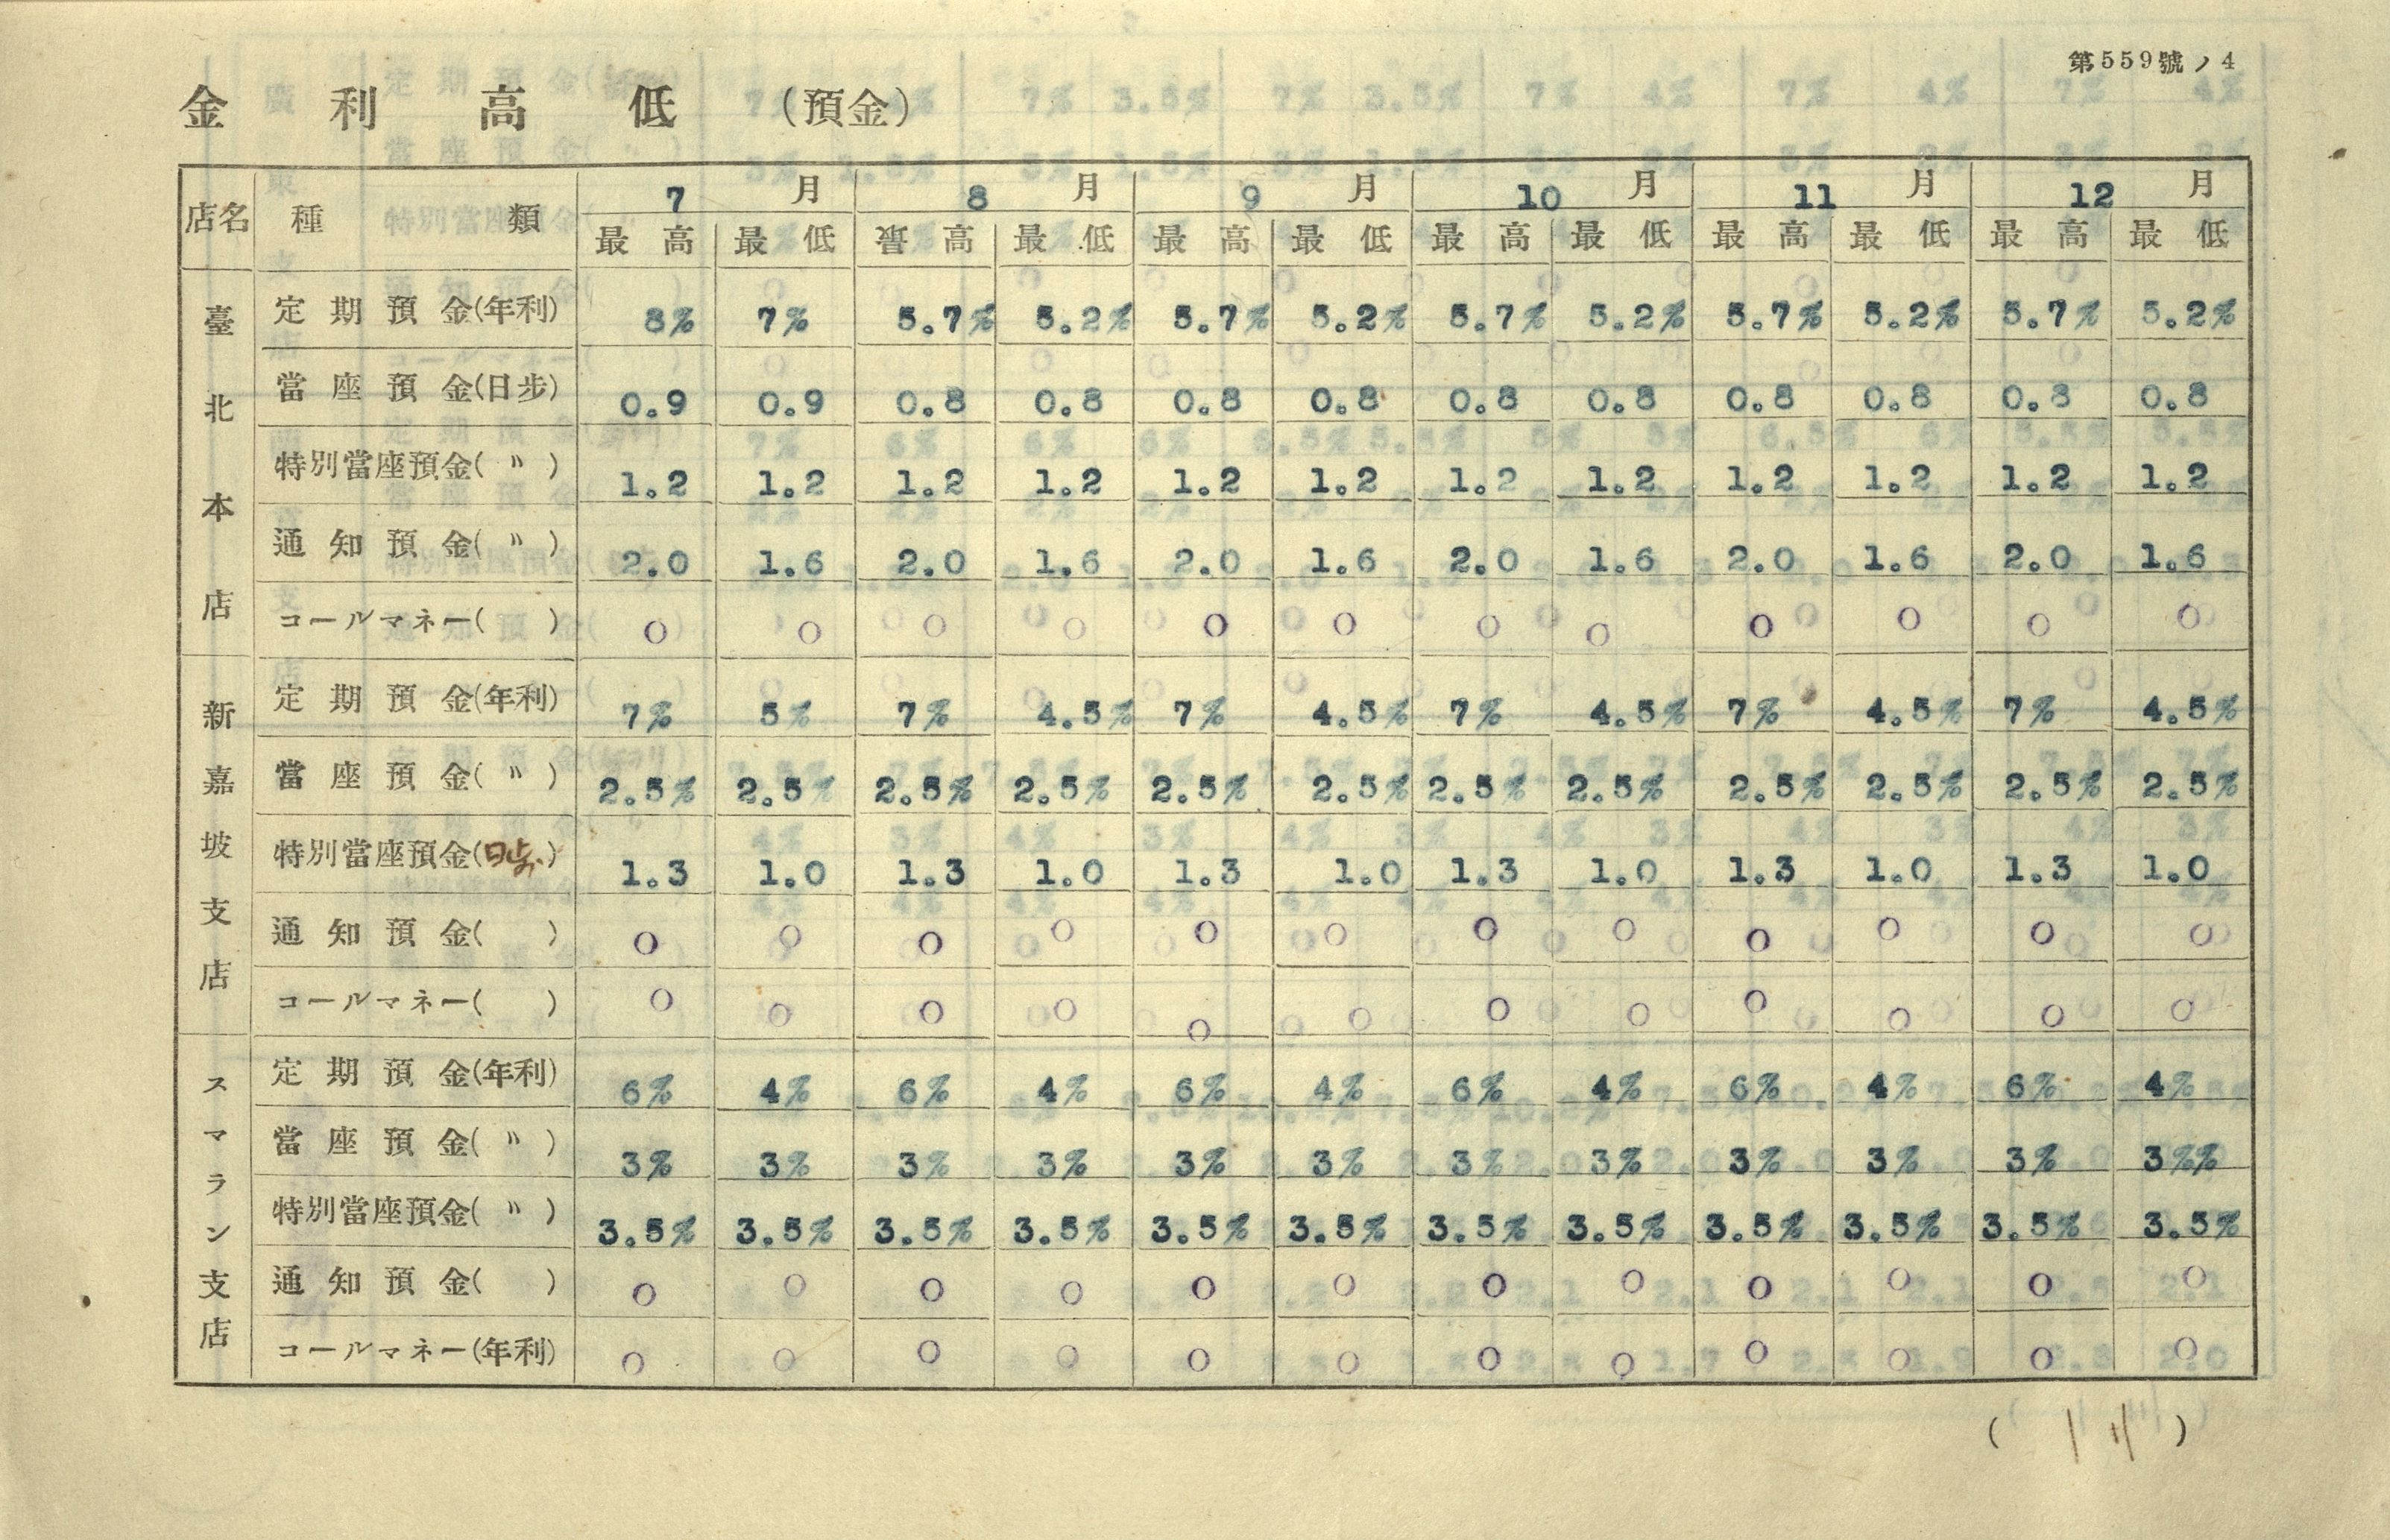 第559號ノ4
金利高低 (預金)
店名 種類 7月 8月 9月 10月 11月 12月
最高 最低 最高 最低 最高 最低 最高 最低 最高 最低 最高 最低
臺北本店
定期預金(年利) 8% 7% 5.7% 5.2% 5.7% 5.2% 5.7% 5.2% 5.7% 5.2% 5.7% 5.2%
當座預金(日步) 0.9 0.9 0.8 0.8 0.8 0.8 0.8 0.8 0.8 0.8 0.8 0.8
特別當座預金(〃) 1.2 1.2 1.2 1.2 1.2 1.2 1.2 1.2 1.2 1.2 1.2 1.2
通知預金(〃) 2.0 1.6 2.0 1.6 2.0 1.6 2.0 1.6 2.0 1.6 2.0 1.6
コールマネー( ) ○ ○ ○ ○ ○ ○ ○ ○ ○ ○ ○ ○
新嘉坡支店
定期預金(年利) 7% 5% 7% 4.5% 7% 4.5% 7% 4.5% 7% 4.5% 7% 4.5%
當座預金(〃) 2.5% 2.5% 2.5% 2.5% 2.5% 2.5% 2.5% 2.5% 2.5% 2.5% 2.5% 2.5%
特別當座預金(日步) 1.3 1.0 1.3 1.0 1.3 1.0 1.3 1.0 1.3 1.0 1.3 1.0
通知預金( ) ○ ○ ○ ○ ○ ○ ○ ○ ○ ○ ○ ○
コールマネー( ) ○ ○ ○ ○ ○ ○ ○ ○ ○ ○ ○ ○
スマラン支店
定期預金(年利) 6% 4% 6% 4% 6% 4% 6% 4% 6% 4% 6% 4%
當座預金(〃) 3% 3% 3% 3% 3% 3% 3% 3% 3% 3% 3% 3%%
特別當座預金(〃) 3.5% 3.5% 3.5% 3.5% 3.5% 3.5% 3.5% 3.5% 3.5% 3.5% 3.5% 3.5%
通知預金( ) ○ ○ ○ ○ ○ ○ ○ ○ ○ ○ ○ ○
コールマネー(年利) ○ ○ ○ ○ ○ ○ ○ ○ ○ ○ ○ ○